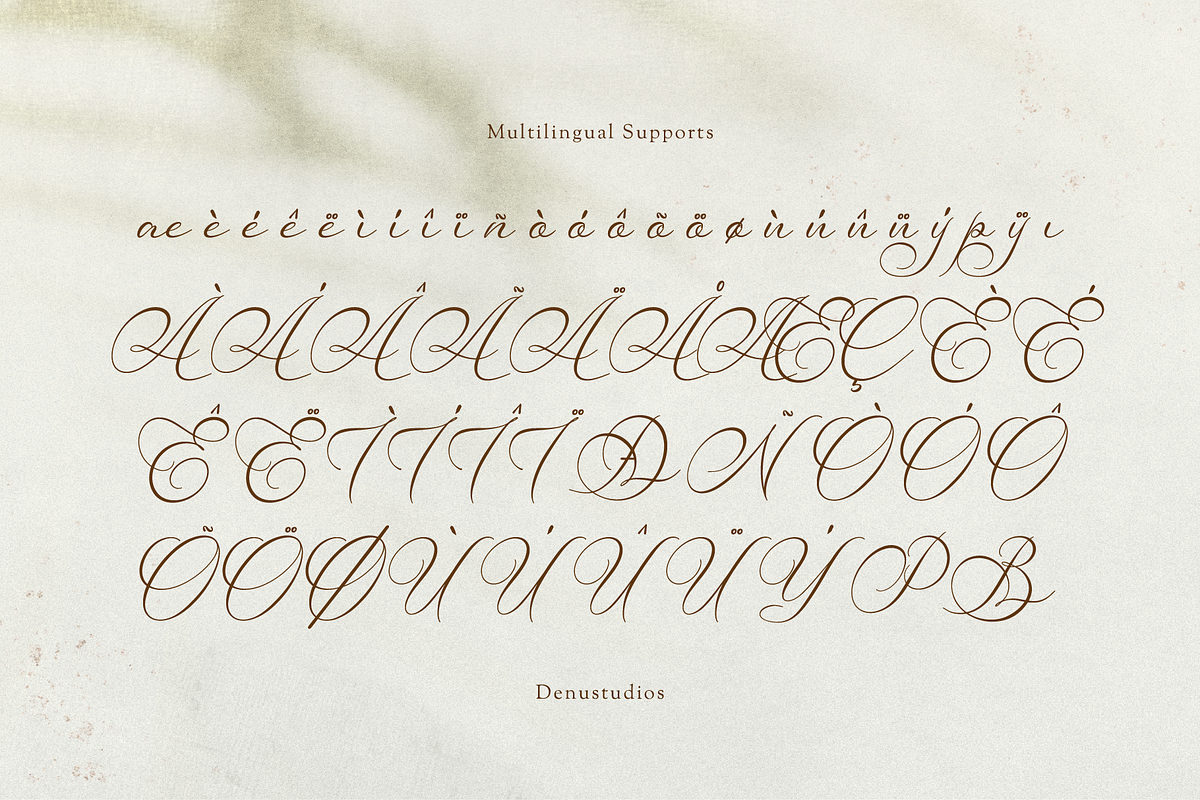 Multilingual Supports
æ è é ê ë ì í î ï ñ ò ó ô õ ö ø ù ú û ü ý þ ÿ ı
À Á Â Ã Ä Å Æ Ç È É
Ê Ë Ì Í Î Ï Ð Ñ Ò Ó Ô
Õ Ö Ø Ù Ú Û Ü Ý Þ ß
Denustudios